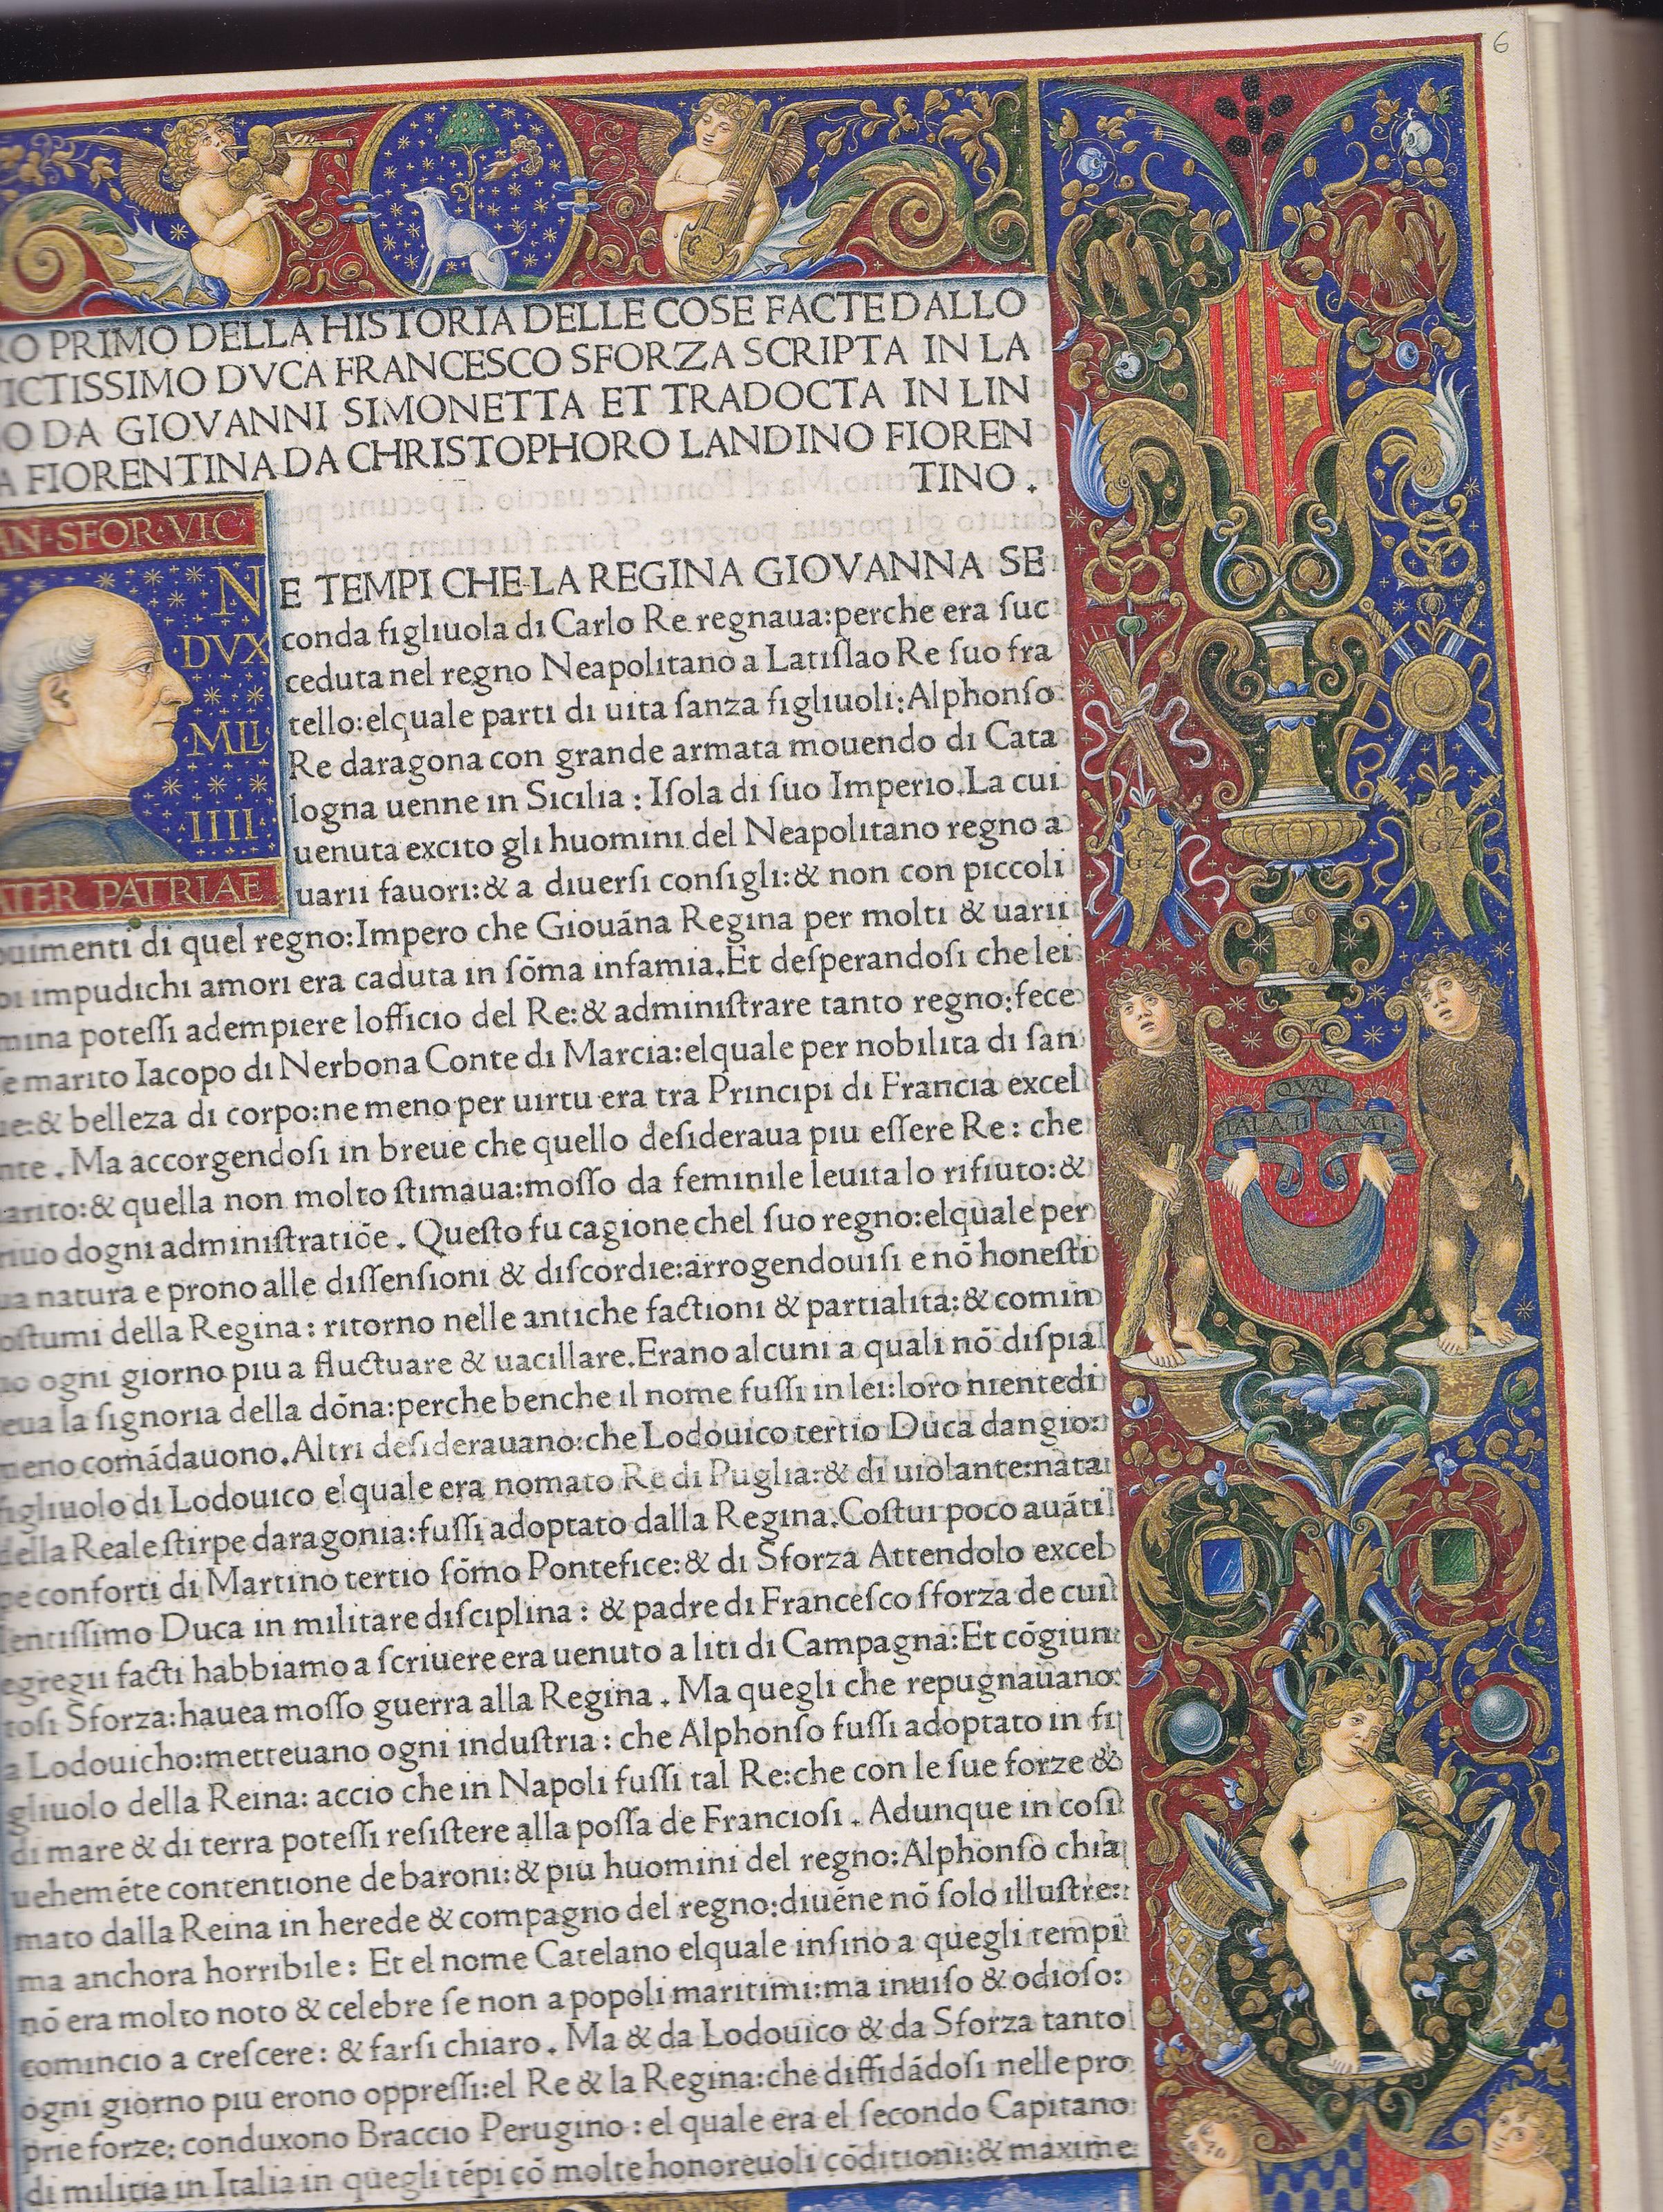 6
RO PRIMO DELLA HISTORIA DELLE COSE FACTE DALLO
ICTISSIMO DVCA FRANCESCO SFORZA SCRIPTA IN LA
O DA GIOVANNI SIMONETTA ET TRADOCTA IN LIN
A FIORENTINA DA CHRISTOPHORO LANDINO FIOREN
TINO .
AN·SFOR·VIC·
N
DVX
·MIL·
·IIII·
ATER PATRIAE
E TEMPI CHE LA REGINA GIOVANNA SE
conda figliuola di Carlo Re regnaua:perche era ſuc
ceduta nel regno Neapolitano a Latiſlao Re ſuo fra
tello:elquale parti di uita ſanza figliuoli:Alphonſo
Re daragona con grande armata mouendo di Cata
logna uenne in Sicilia : Iſola di ſuo Imperio.La cui
uenuta excito gli huomini del Neapolitano regno a
uarii fauori:& a diuerſi conſigli:& non con piccoli
ouimenti di quel regno:Impero che Giouāna Regina per molti & uarii
oi impudichi amori era caduta in ſōma infamia.Et deſperandoſi che lei
mina poteſſi adempiere lofficio del Re:& adminiſtrare tanto regno:fece
ſe marito Iacopo di Nerbona Conte di Marcia:elquale per nobilita di ſan
ue:& belleza di corpo:ne meno per uirtu era tra Principi di Francia excel
nte . Ma accorgendoſi in breue che quello deſideraua piu eſſere Re: che
arito:& quella non molto ſtimaua:moſſo da feminile leuita lo rifiuto:&
riuo dogni adminiſtratiōe . Queſto fu cagione chel ſuo regno:elquale per
ua natura e prono alle diſſenſioni & diſcordie:arrogendouiſi e nō honeſti
oſtumi della Regina: ritorno nelle antiche factioni & partialita:& comin
no ogni giorno piu a fluctuare & uacillare.Erano alcuni a quali nō diſpia
ceua la ſignoria della dōna:perche benche il nome fuſſi in lei:loro nientedi
meno comādauono.Altri deſiderauano:che Lodouico tertio Duca dangio:
figliuolo di Lodouico elquale era nomato Re di Puglia:& di uiolante:nata
della Reale ſtirpe daragonia:fuſſi adoptato dalla Regina.Coſtui poco auāti
pe conforti di Martino tertio ſōmo Pontefice:& di Sforza Attendolo excel
lentiſſimo Duca in militare diſciplina : & padre di Franceſco ſforza de cui
egregii facti habbiamo a ſcriuere era uenuto a liti di Campagna:Et cōgiun
toſi Sforza:hauea moſſo guerra alla Regina . Ma quegli che repugnauano
a Lodouicho:metteuano ogni induſtria : che Alphonſo fuſſi adoptato in fi
gliuolo della Reina: accio che in Napoli fuſſi tal Re:che con le ſue forze &
di mare & di terra poteſſi reſiſtere alla poſſa de Francioſi . Adunque in coſi
uehemēte contentione de baroni:& piu huomini del regno:Alphonſo chia
mato dalla Reina in herede & compagno del regno:diuēne nō ſolo illuſtre:
ma anchora horribile : Et el nome Catelano elquale inſino a quegli tempi
nō era molto noto & celebre ſe non a popoli maritimi:ma inuiſo & odioſo:
comincio a creſcere : & farſi chiaro . Ma & da Lodouico & da Sforza tanto
ogni giorno piu erono oppreſſi:el Re & la Regina:che diffidādoſi nelle pro
prie forze: conduxono Braccio Perugino : el quale era el ſecondo Capitano
di militia in Italia in quegli tēpi cō molte honoreuoli cōditioni:& maxime
GZ
GZ
QVAL